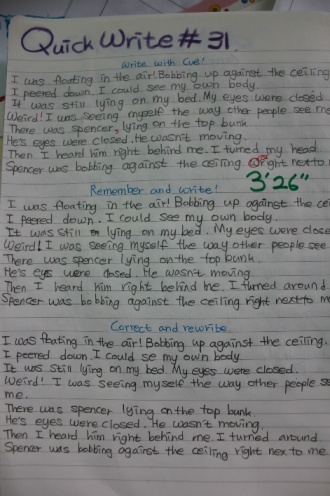 Quick Write # 31
Write with Cue!
I was floating in the air! Bobbing up against the ceiling
I peered down. I could see my own body.
It was still lying on my bed. My eyes were closed
Weird! I was seeing myself the way other people see
There was spencer, lying on the top bunk.
He's eyes were closed. He wasn't moving.
Then I heard him right behind me. I turned my head
Spencer was bobbing against the ceiling right next to
3'26"
Remember and write!
I was floating in the air! Bobbing up against the cei
I peered down. I could see my own body.
It was still lying on my bed. My eyes were close
Weird! I was seeing myself the way other people see
There was spencer lying on the top bunk.
He's eys were closed. He wasn't moving.
Then I heard him right behind me. I turned around
Spencer was bobbing against the ceiling right next to m
Correct and rewrite.
I was floating in the air! Bobbing up against the ceiling.
I peered down I could se my own body
It was still lying on my bed. My eyes were closed.
Weird! I was seeing myself the way other people se
me.
There was spencer lying on the top bunk.
He's eyes were closed. He wasn't moving.
Then I heard him right behind me. I turned around.
Spencer was bobbing against the ceiling right next to me